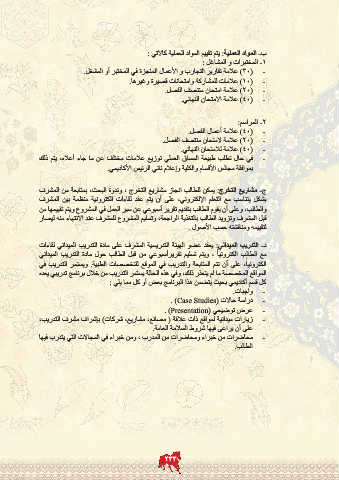 ب- المواد العملية: يتم تقييم المواد العملية كالآتي :
١- المختبرات و المشاغل :
- (٣٠) علامة تقارير التجارب و الأعمال المنجزة في المختبر أو المشغل.
- (١٠) علامات للمشاركة وامتحانات قصيرة وغيرها.
- (٢٠) علامة امتحان منتصف الفصل.
- (٤٠) علامة الامتحان النهائي.
٢- المراسم:
- (٤٠) علامة أعمال الفصل.
- (٢٠) علامة لامتحان منتصف الفصل.
- (٤٠) علامة للامتحان النهائي.
- في حال تطلب طبيعة المساق العملي توزيع علامات مختلف عن ما جاء أعلاه، يتم ذلك
بموافقة مجالس الأقسام والكلية وإعلام نائب الرئيس الأكاديمي.
ج- مشاريع التخرج: يمكن للطالب انجاز مشاريع التخرج ، وندوة البحث، بمتابعة من المشرف
بشكل يتناسب مع التعلم الإلكتروني، على أن يتم عقد لقاءات الكترونية منتظمة بين المشرف
والطالب، وعلى أن يقوم الطالب بتقديم تقرير أسبوعي عن سير العمل في المشروع ويتم تقييمها من
قبل المشرف وتزويد الطالب بالتغذية الراجعة، وتسليم المشروع للمشرف عند الانتهاء منه ليصار
لتقييمه ومناقشته حسب الأصول .
د- التدريب الميداني: يعقد عضو الهيئة التدريسية المشرف على مادة التدريب الميداني لقاءات
مع الطالب الكترونياً ، ويتم تسليم تقرير أسبوعي من قبل الطالب حول مادة التدريب الميداني
الكترونيا، على أن تتم المتابعة والتدريب في الموقع للتخصصات الطبية. ويستمر التدريب في
المواقع المخصصة ما لم يتعذر ذلك، وفي هذه الحالة يستمر التدريب من خلال برنامج تدريبي يعده
كل قسم أكاديمي بحيث يتضمن هذا البرنامج بعض أو كل مما يلي :
- واجبات.
- دراسة حالات (Case Studies) .
- عرض توضيحي (Presentation) .
- زيارات ميدانية لمواقع ذات علاقة ( مصانع، مشاريع، شركات) بإشراف مشرف التدريب،
على أن يراعى فيها شروط السلامة العامة.
- محاضرات من خبراء ومحاضرات من المدرب ، ومن خبراء في المجالات التي يتدرب فيها
الطالب.